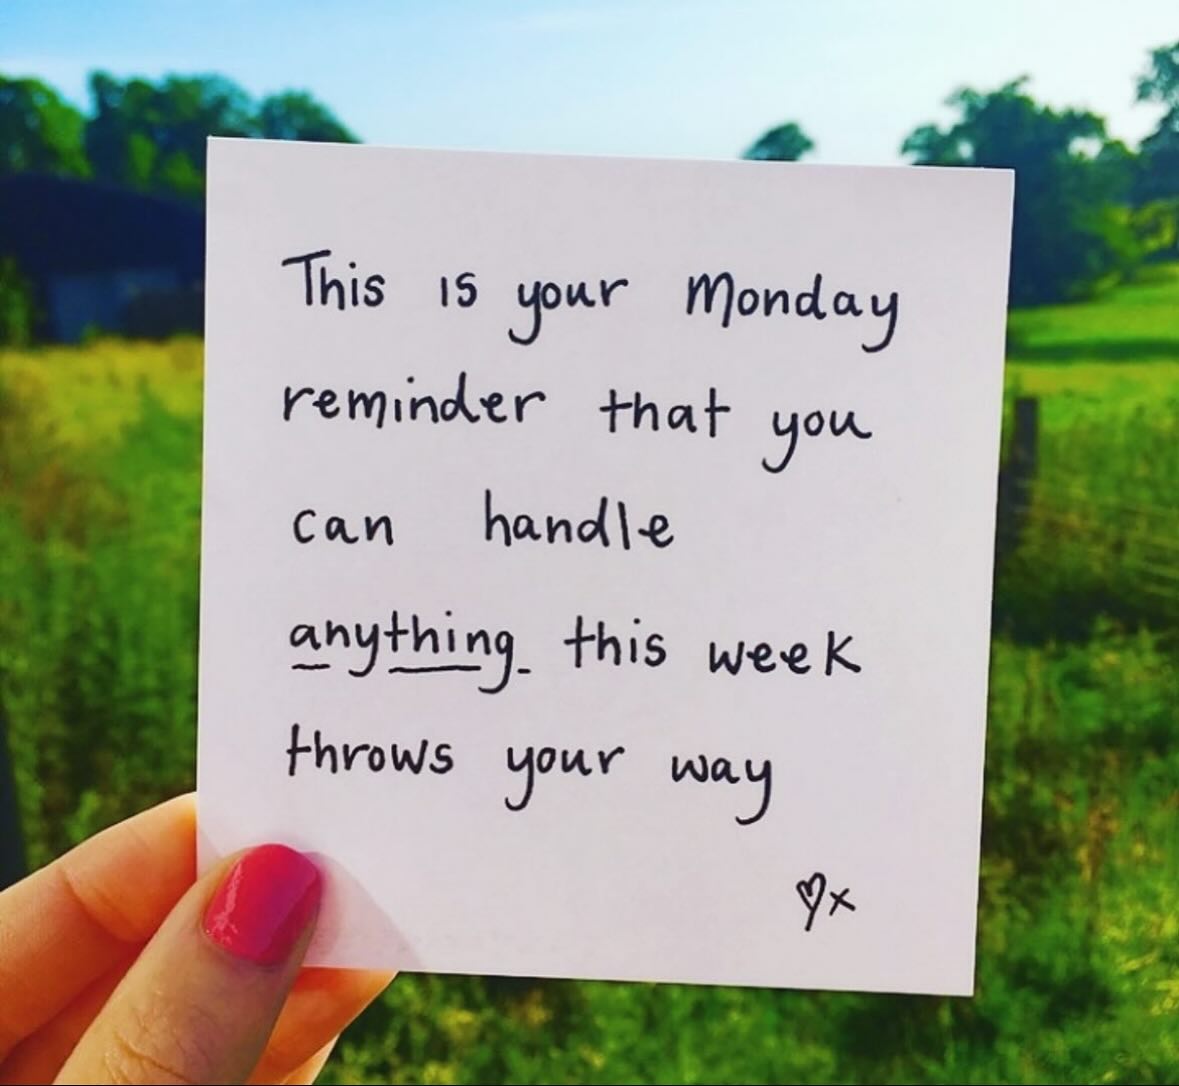 This is your Monday
reminder that you
can handle
anything this week
throws your way
♡x